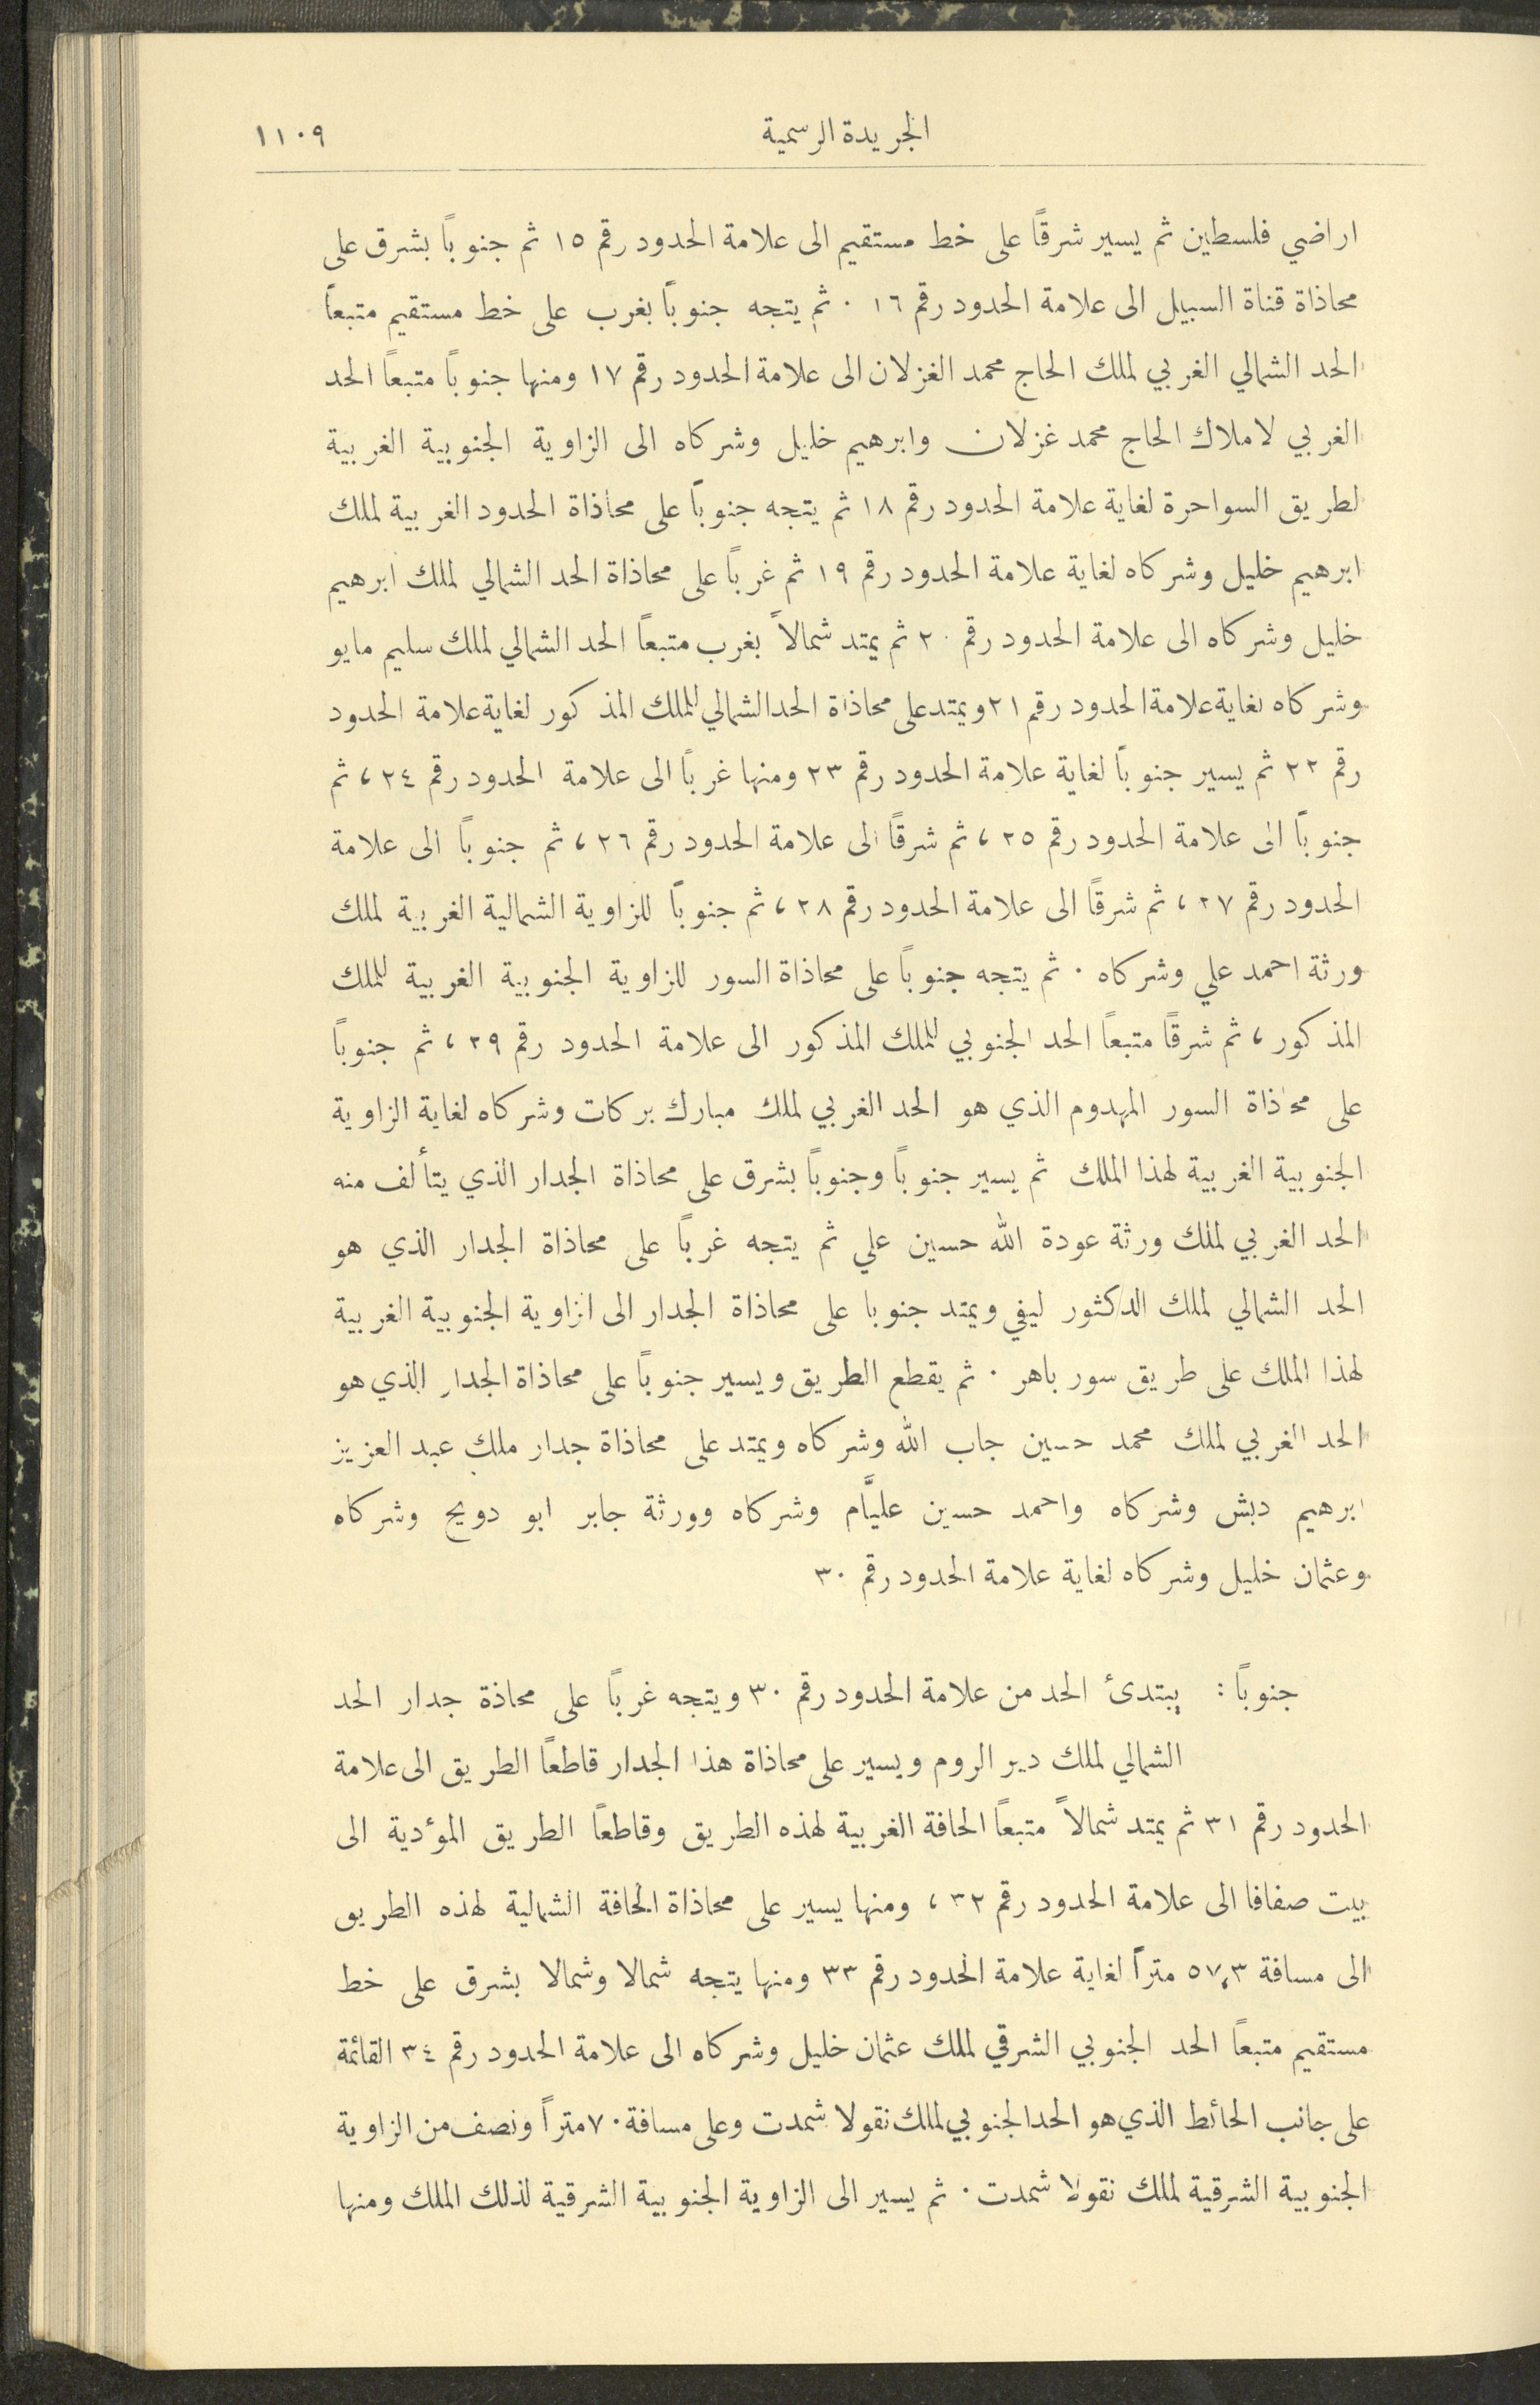 الجريدة الرسمية ١١٠٩
اراضي فلسطين ثم يسير شرقاً على خط مستقيم الى علامة الحدود رقم ١٥ ثم جنوباً بشرق على
محاذاة قناة السبيل الى علامة الحدود رقم ١٦ ٠ ثم يتجه جنوباً بغرب على خط مستقيم متبعاً
الحد الشمالي الغربي لملك الحاج محمد الغزلان الى علامة الحدود رقم ١٧ ومنها جنوباً متبعاً الحد
الغربي لاملاك الحاج محمد غزلان وابرهيم خليل وشركاه الى الزاوية الجنوبية الغربية
لطريق السواحرة لغاية علامة الحدود رقم ١٨ ثم يتجه جنوباً على محاذاة الحدود الغربية لملك
ابرهيم خليل وشركاه لغاية علامة الحدود رقم ١٩ ثم غرباً على محاذاة الحد الشمالي لملك ابرهيم
خليل وشركاه الى علامة الحدود رقم ٢٠ ثم يمتد شمالاً بغرب متبعاً الحد الشمالي لملك سليم مايو
وشركاه لغاية علامة الحدود رقم ٢١ ويمتد على محاذاة الحد الشمالي للملك المذكور لغاية علامة الحدود
رقم ٢٢ ثم يسير جنوباً لغاية علامة الحدود رقم ٢٣ ومنها غرباً الى علامة الحدود رقم ٢٤ ، ثم
جنوباً الى علامة الحدود رقم ٢٥ ، ثم شرقاً الى علامة الحدود رقم ٢٦ ، ثم جنوباً الى علامة
الحدود رقم ٢٧ ، ثم شرقاً الى علامة الحدود رقم ٢٨ ، ثم جنوباً للزاوية الشمالية الغربية لملك
ورثة احمد علي وشركاه ٠ ثم يتجه جنوباً على محاذاة السور للزاوية الجنوبية الغربية للملك
المذكور ، ثم شرقاً متبعاً الحد الجنوبي للملك المذكور الى علامة الحدود رقم ٢٩ ، ثم جنوباً
على محاذاة السور المهدوم الذي هو الحد الغربي لملك مبارك بركات وشركاه لغاية الزاوية
الجنوبية الغربية لهذا الملك ثم يسير جنوباً وجنوباً بشرق على محاذاة الجدار الذي يتألف منه
الحد الغربي لملك ورثة عودة الله حسين علي ثم يتجه غرباً على محاذاة الجدار الذي هو
الحد الشمالي لملك الدكتور ليفي ويمتد جنوبا على محاذاة الجدار الى الزاوية الجنوبية الغربية
لهذا الملك على طريق سور باهر ٠ ثم يقطع الطريق ويسير جنوباً على محاذاة الجدار الذي هو
الحد الغربي لملك محمد حسين جاب الله وشركاه ويمتد على محاذاة جدار ملك عبد العزيز
ابرهيم دبش وشركاه واحمد حسين عليَّام وشركاه وورثة جابر ابو دويح وشركاه
وعثمان خليل وشركاه لغاية علامة الحدود رقم ٣٠
جنوباً : يبتدئ الحد من علامة الحدود رقم ٣٠ ويتجه غرباً على محاذة جدار الحد
الشمالي لملك دير الروم ويسير على محاذاة هذا الجدار قاطعاً الطريق الى علامة
الحدود رقم ٣١ ثم يمتد شمالاً متبعاً الحافة الغربية لهذه الطريق وقاطعاً الطريق المؤدية الى
بيت صفافا الى علامة الحدود رقم ٣٢ ، ومنها يسير على محاذاة الحافة الشمالية لهذه الطريق
الى مسافة ٥٧،٣ متراً لغاية علامة الحدود رقم ٣٣ ومنها يتجه شمالا وشمالا بشرق على خط
مستقيم متبعاً الحد الجنوبي الشرقي لملك عثمان خليل وشركاه الى علامة الحدود رقم ٣٤ القائمة
على جانب الحائط الذي هو الحد الجنوبي لملك نقولا شمدت وعلى مسافة ٧٠ متراً ونصف من الزاوية
الجنوبية الشرقية لملك نقولا شمدت ٠ ثم يسير الى الزاوية الجنوبية الشرقية لذلك الملك ومنها